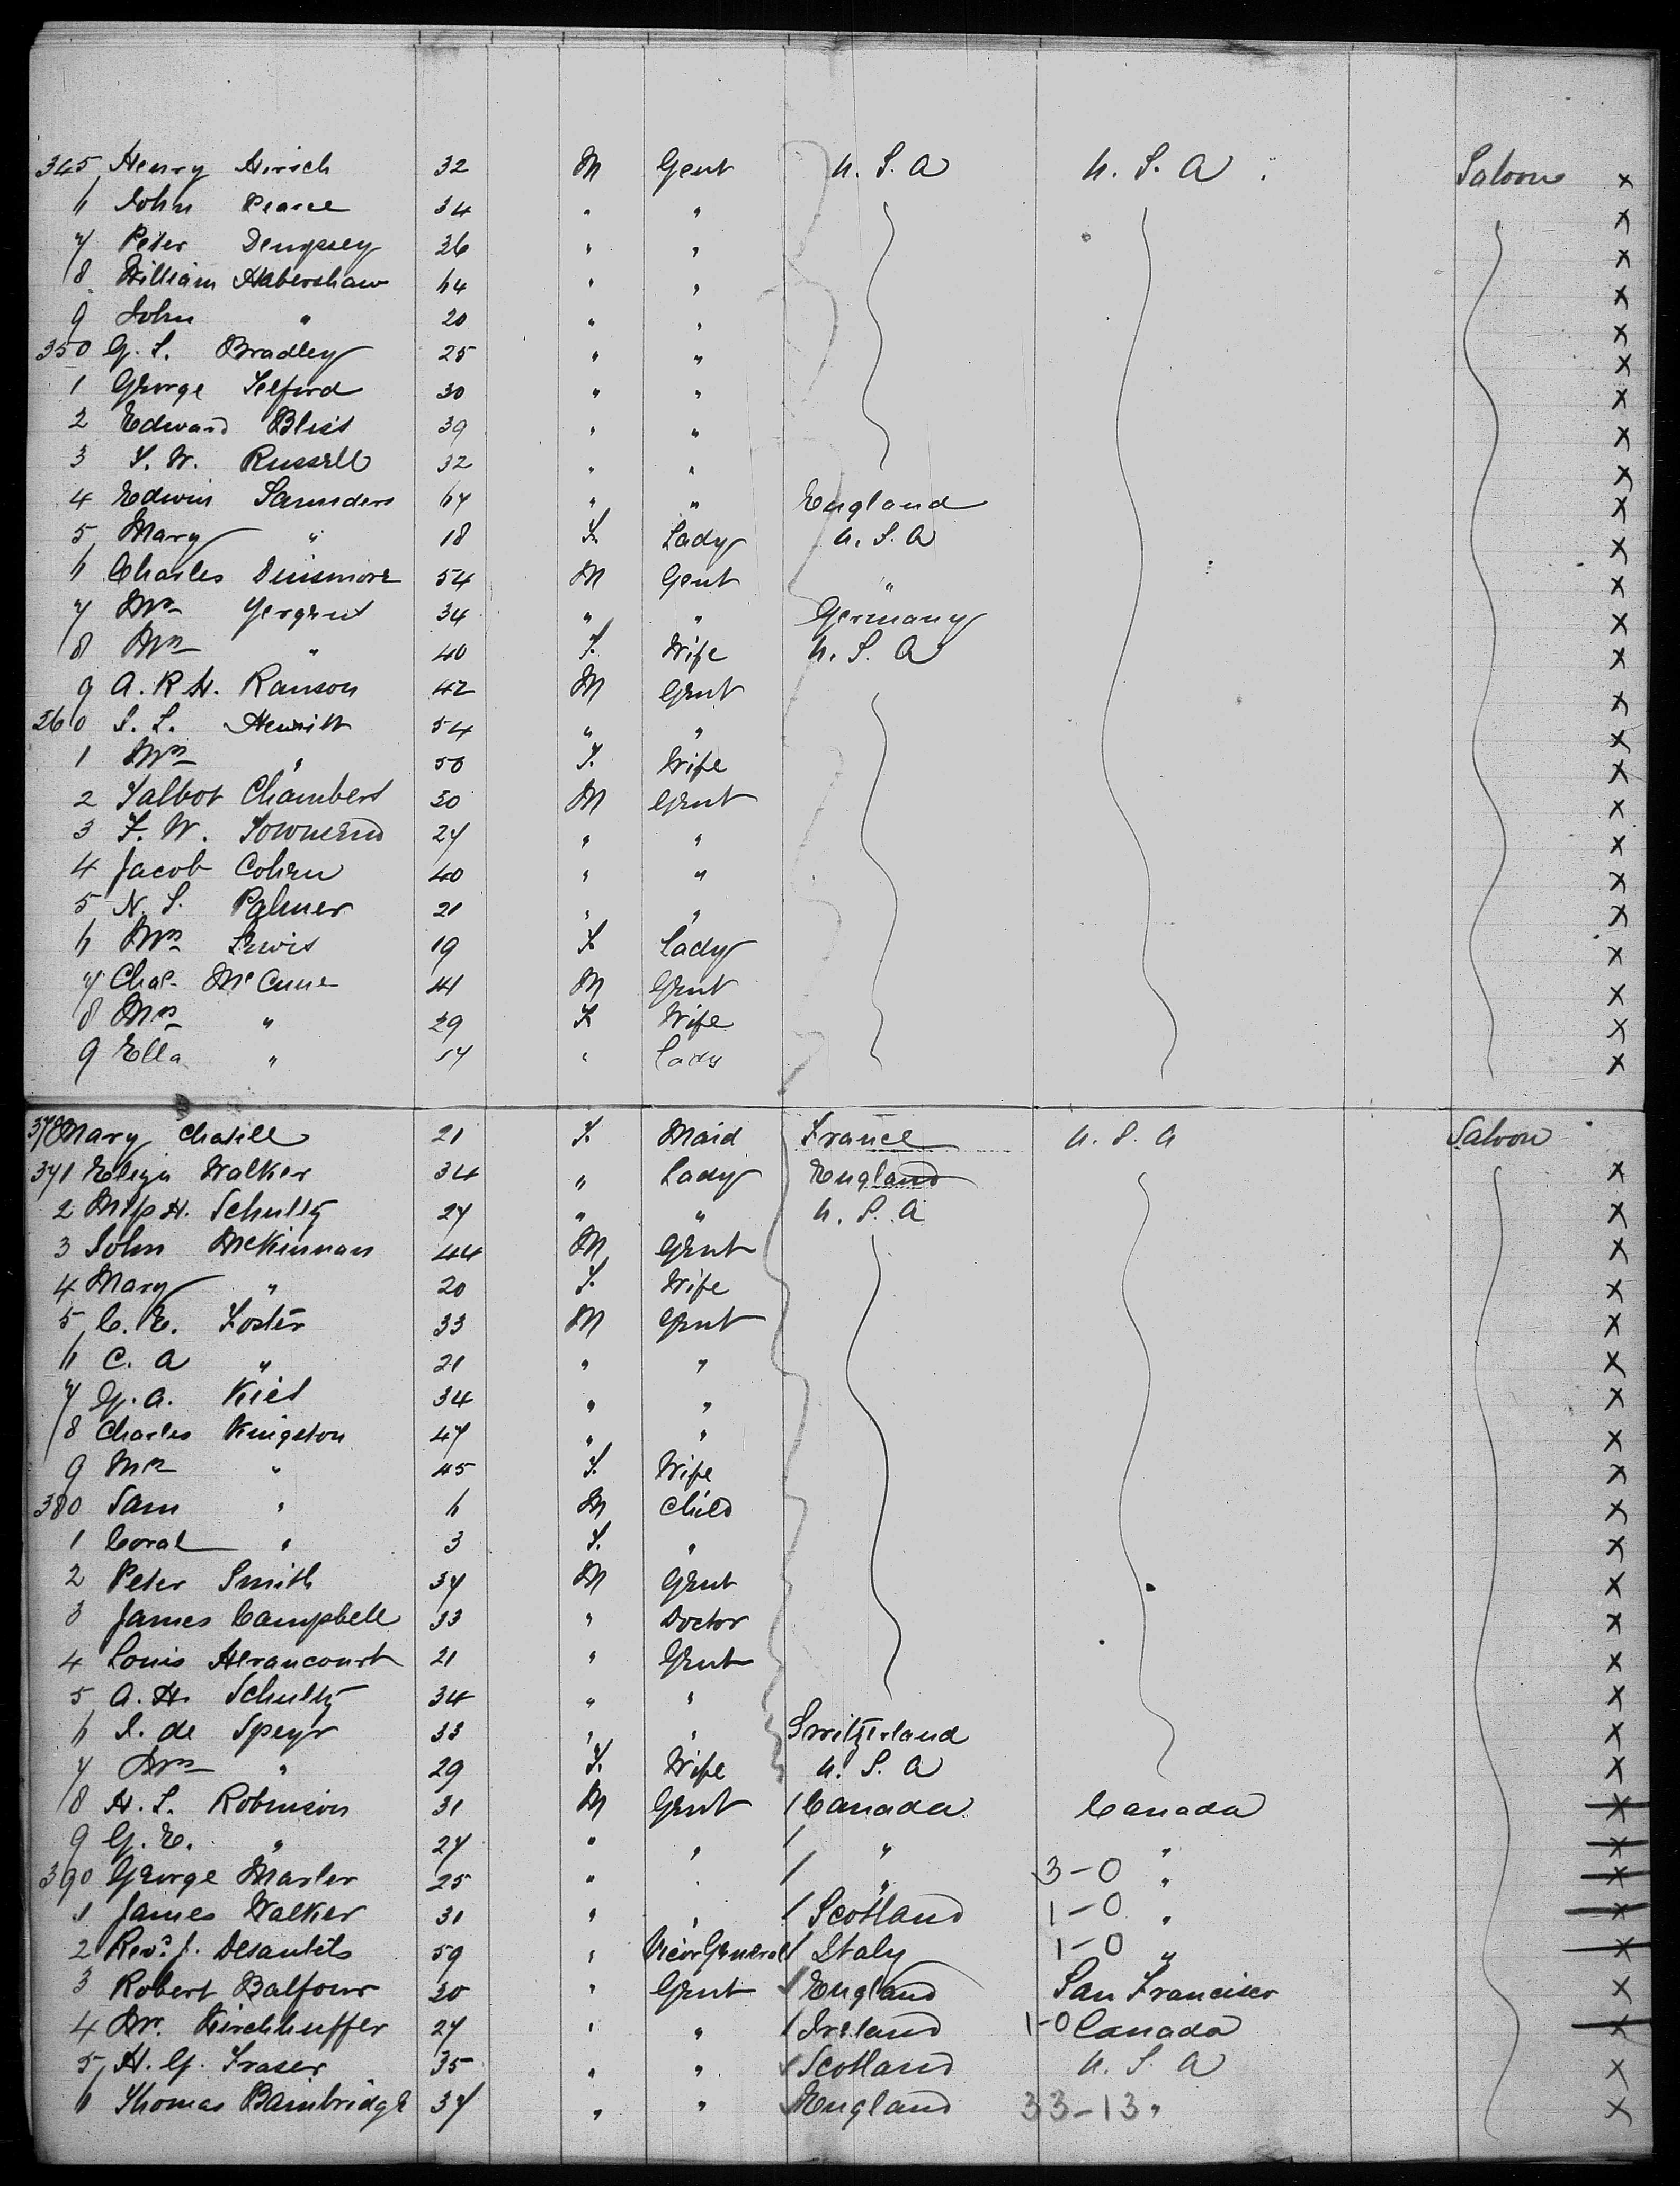 345 Henry Hirsch 32 M Gent U.S.A U.S.A Saloon x
6 John Pearce 34 " " x
7 Peter Dempsey 36 " " x
8 William Habershaw 64 " " x
9 John " 20 " " x
350 G. S. Bradley 25 " " x
1 George Telford 30 " " x
2 Edward Bliss 39 " " x
3 T. W. Russell 32 " " x
4 Edwin Saunders 67 " " England x
5 Mary " 18 F. Lady U.S.A x
6 Charles Dinsmore 54 M Gent " x
7 Mr Yergens 34 " " Germany x
8 Mrs " 40 F. Wife U.S.A x
9 A. R. H. Ranson 42 M Gent x
360 S. L. Hewitt 54 " " x
1 Mrs " 50 F. Wife x
2 Talbot Chambers 30 M Gent x
3 F. W. Townend 27 " " x
4 Jacob Cohen 40 " " x
5 N. S. Palmer 21 " " x
6 Mrs Lewis 19 F. Lady x
7 Chas McCune 41 M Gent x
8 Mrs " 29 F Wife x
9 Ella " 17 " Lady x
370 Mary Chatill 21 F. Maid France U.S.A Saloon
371 Eliza Walker 34 " Lady England x
2 Miss H. Schultz 27 " " U.S.A x
3 John McKinnan 44 M Gent x
4 Mary " 20 F. Wife x
5 C. E. Foster 33 M Gent x
6 C. A " 21 " " x
7 G. A. Kiel 34 " " x
8 Charles Kingston 47 " " x
9 Mrs " 45 F. Wife x
380 Sam " 6 M Child x
1 Coral " 3 F. " x
2 Peter Smith 37 M Gent x
3 James Campbell 33 " Doctor x
4 Louis Herancourt 21 " Gent x
5 A. H. Schultz 34 " " x
6 I. de Speyr 33 " " Switzerland x
7 Mrs " 29 F. Wife U.S.A x
8 H. S. Robinson 31 M Gent / Canada Canada x
9 G. E. " 27 " " / " " x
390 George Marler 25 " " / " 3-0 " x
1 James Walker 31 " " / Scotland 1-0 " x
2 Revd J. Desautels 59 " Vicar General / Italy 1-0 " x
3 Robert Balfour 30 " Gent / England San Francisco x
4 Mr. Kirchhuffer 27 " " / Ireland 1-0 Canada x
5 H. G. Fraser 35 " " / Scotland U.S.A x
6 Thomas Bainbridge 37 " " / England 33-13 " x